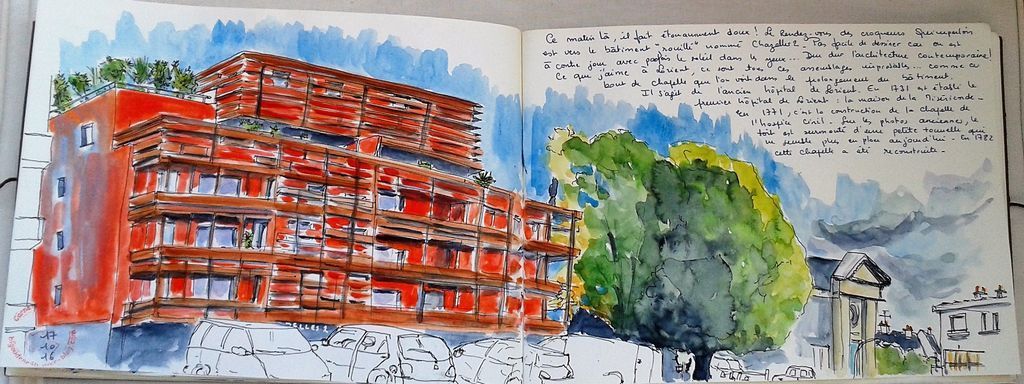 Ce matin là, il fait étonnamment doux ! Le Rendez-vous des croqueurs Quimperlois
est vers le bâtiment "rouillé" nommé Chazelles 2 - Pas facile de dessiner car on est
à contre jour avec parfois le soleil dans les yeux... Dur dur l'architecture contemporaine !
Ce que j'aime à Lorient, ce sont tous ces assemblages improbables - comme ce
bout de chapelle que l'on voit dans le prolongement du bâtiment.
Il s'agit de l'ancien hôpital de Lorient. En 1731 est établi le
premier hôpital de Lorient : la maison de la Miséricorde -
En 1771, c'est la construction de la chapelle de
l'hospice Civil. Sur les photos anciennes, le
toit est surmonté d'une petite tourelle qui
ne semble plus en place aujourd'hui - En 1782
cette chapelle a été reconstruite -
ELLES 2
17
10
16